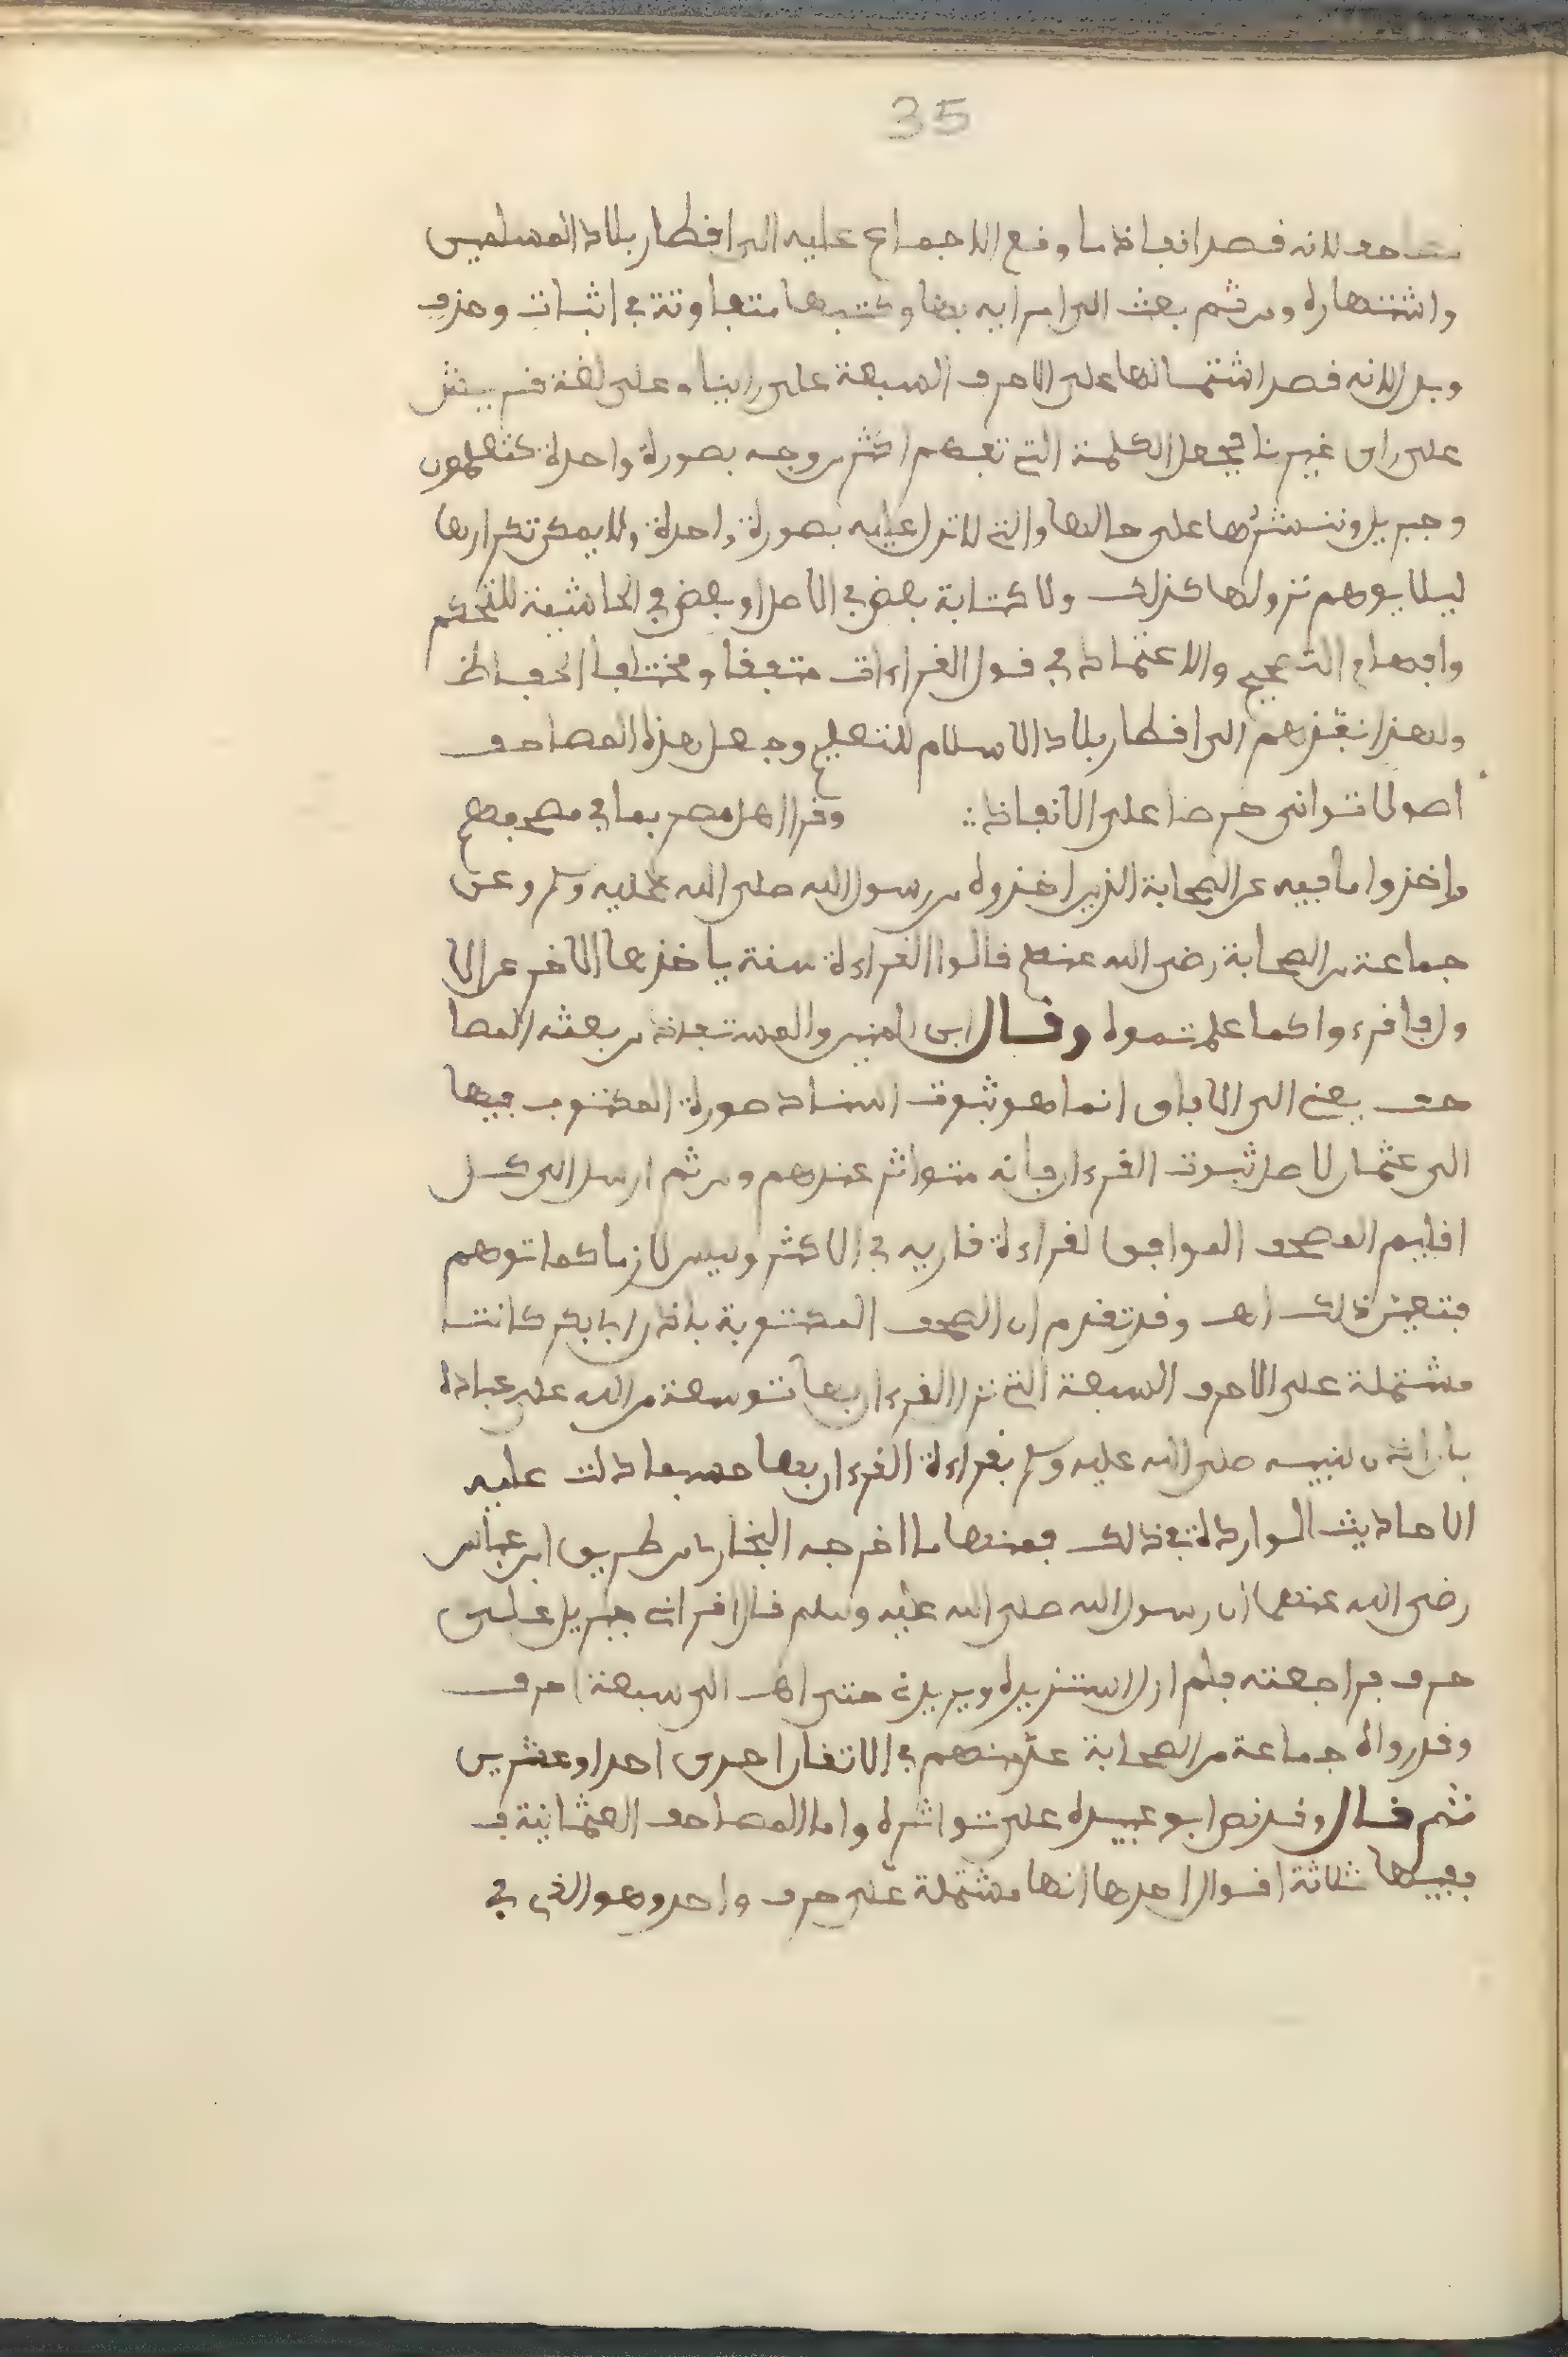 35
مصاحف لانه قصد انفاذ ما وقع الاجماع عليه الى اقطار بلاد المسلمين
واشتهاره ومن ثم بعث الى امرايه بها وكتبها متفاوتة في اثبات وحذف
وبدل لانه قصد اشتمالها على الاحرف السبعة على راينا وعلى لغة قريش
على راى غيرنا فيجعل الكلمة التي تفهم اكثر من وجه بصورة واحدة كتعلمون
وجبريل وننشرها على حالها والتي لا تدل عليه بصورة واحدة ولا يمكن تكرارها
ليلا يوهم نزولها كذلك ولا كتابة بعض في الاصل وبعض في الحاشية للتحكم
وابهام التصحيح والاعتماد في قول القراءات متفقا ومختلفا الحفاظ
ولهذا نفذهم الى اقطار بلاد الاسلام للتعليم وجعل هذه المصاحف
اصولا ثواني حرصا على الانفاذ وقرا اهل مصر بما في مصحفهم
واخذوا ما فيه عن الصحابة الذين اخذوه من رسول الله صلى الله عليه وسلم وعن
جماعة من الصحابة رضى الله عنهم قالوا القراءة سنة ياخذها الاخر عن الا
ول فاقرءوا كما علمتموه وقال ابن المنير والمستفاد من بعثه المصا
حف يعني الى الافاق انما هو ثبوت اسناد صورة المكتوب فيها
الى عثمان لا اصل ثبوت القرءان فانه متواتر عندهم ومن ثم ارسل الى كل
اقليم المصحف الموافق لقراءة قاريه في الاكثر وليس لازما كما توهم
فتعين ذلك اهـ وقد تقدم ان الصحف المكتوبة باذن ابى بكر كانت
مشتملة على الاحرف السبعة التي نزل القرءان بها توسعة من الله على عباده
بان اذن لنبيه صلى الله عليه وسلم بقراءة القرءان بها حسبما دلت عليه
الاحاديث الواردة في ذلك فمنها ما اخرجه البخارى من طريق ابن عباس
رضى الله عنهما ان رسول الله صلى الله عليه وسلم قال اقرانى جبريل على
حرف فراجعته فلم ازل استزيده ويزيدني حتى انتهـ الى سبعة احرف
وقد رواه جماعة من الصحابة عد منهم في الاتقان احدى احدا وعشرين
ثم قال وقد نص ابو عبيدة على تواتره واما المصاحف العثمانية فـ
ففيها ثلاثة اقوال احدها انها مشتملة على حرف واحد وهو الذى في